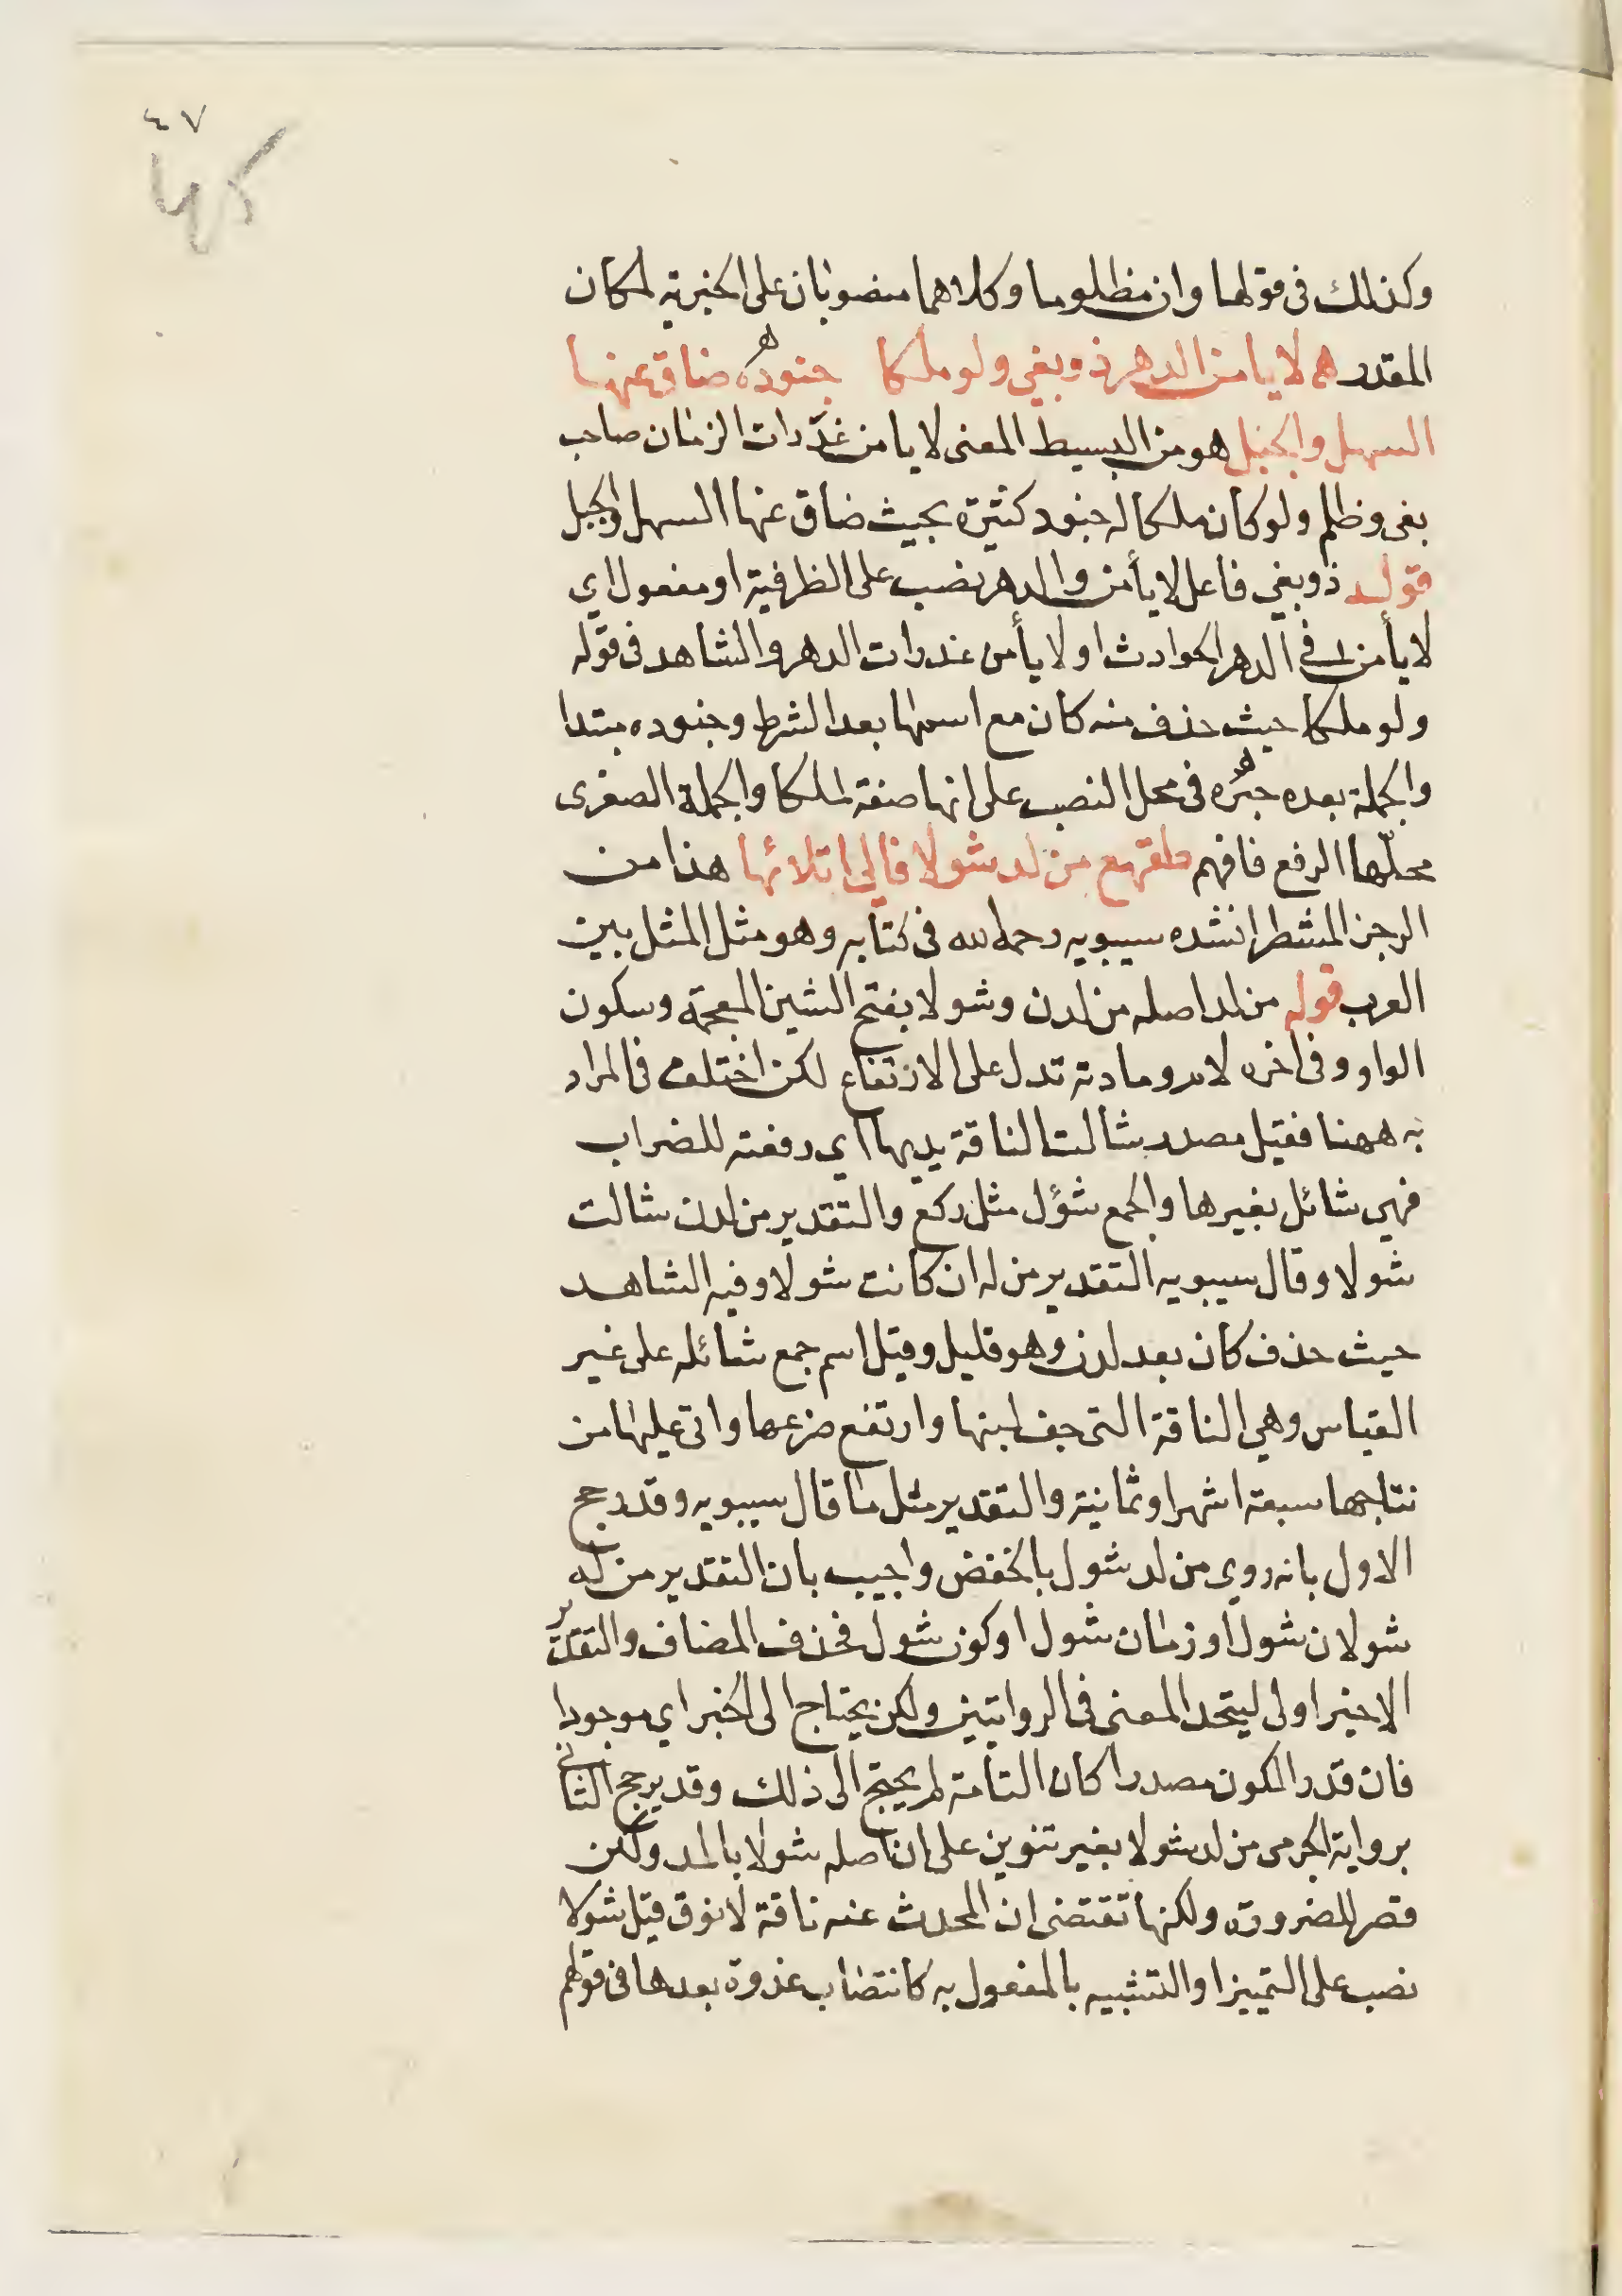 ٤٧
وكذلك في قولها وان مظلوما وكلاهما منصوبان على الخبرية لكان
المقدر هـ لا يامن الدهر ذو بغي ولو ملكا جنوده ضاق عنها
السهل والجبل هو من البسيط المعنى لا يامن غدرات الزمان صاحب
بغى وظلم ولو كان ملكا له جنود كثيرة بحيث ضاق عنها السهل والجبل
قوله ذو بغي فاعل لا يأمن والدهر نصب على الظرفية او مفعول اي
لا يأمن في الدهر الحوادث او لا يأمن غدرات الدهر والشاهد في قوله
ولو ملكا حيث حذف منه كان مع اسمها بعد الشرط وجنوده مبتدا
والجملة بعده خبره في محل النصب على انها صفة لملكا والجملة الصغرى
محلّها الرفع فافهم من لد شولا فالى اتلائها هذا من
الرجز المشطر انشده سيبويه رحمه الله في كتابه وهو مثل المثل بين
العرب قوله من لد اصله من لدن وشولا بفتح الشين المعجمة وسكون
الواو وفي اخره لام ومادته تدل على الارتفاع لكن اختلف في المراد
به ههنا فقيل مصدر شالت الناقة بديها اي رفعته للضراب
فهي شائل بغيرها والجمع شوّل مثل ركع والتقدير من لدن شالت
شولا وقال سيبويه التقدير من لد ان كانت شولا وفيه الشاهد
حيث حذف كان بعد لدن وهو قليل وقيل اسم جمع شائله على غير
القياس وهي الناقة التي جف لبنها وارتفع ضرعها واتى عليها من
نتاجها سبعة اشهر او ثمانية والتقدير مثل ما قال سيبويه وقد رجح
الاول بانه روي من لد شول بالخفض واجيب بان التقدير من لد
شولان شول او زمان شول او كون شول فحذف المضاف والتقدير
الاخير اولى ليتحد المعنى في الروايتين ولكن يحتاج الى الخبر اي موجودا
فان قدر الكون مصدرا كان التامة لم يحتج الى ذلك وقد يرجح الثاني
برواية الجرمي من لد شولا بغير تنوين على ان اصله شولا بالمد ولكن
قصر للضرورة ولكنها تقتضى ان المحدث عنه ناقة لا نوق قيل شولا
نصب على التمييز او التشبيه بالمفعول به كانتصاب غدوة بعدها في قولهم